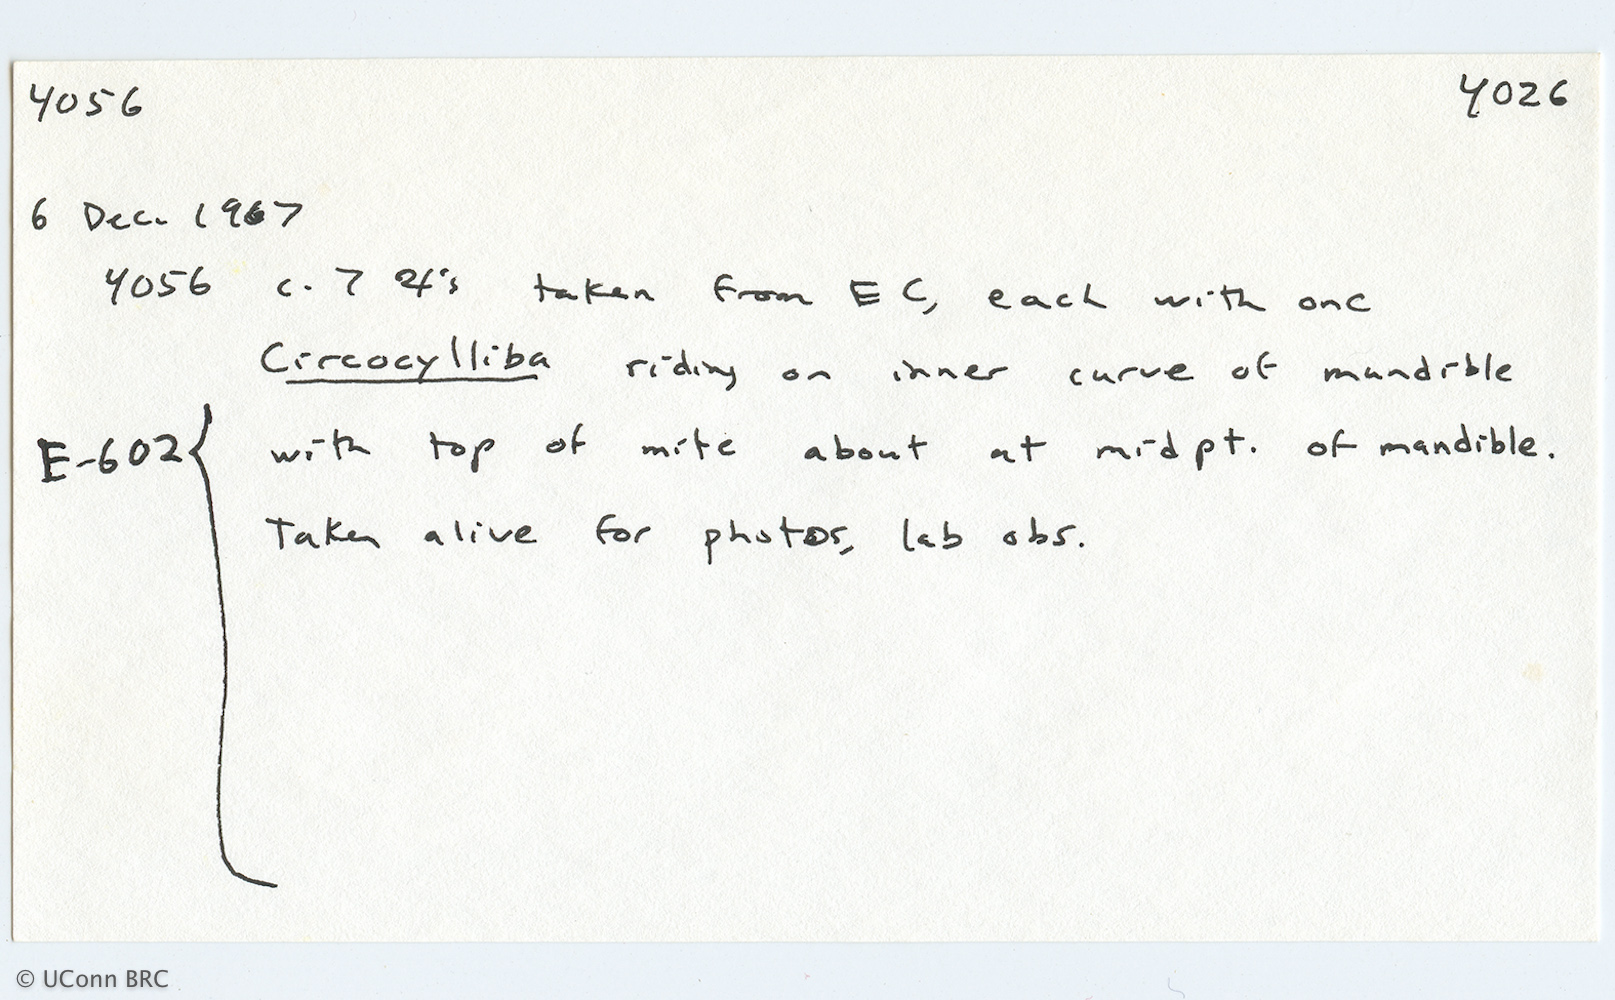 4056 4026
6 Dec. 1967
4056 c. 7 ♃'s taken from EC, each with one
Circocylliba riding on inner curve of mandible
E-602 { with top of mite about at midpt. of mandible.
Taken alive for photos, lab obs.
© UConn BRC